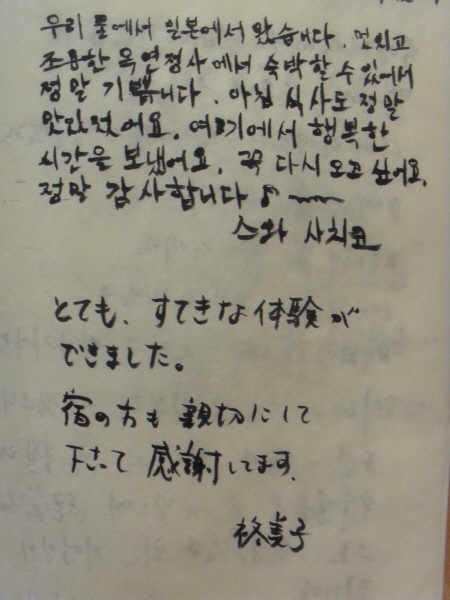 우리 둘에서 일본에서 왔습니다. 멋지고
조용한 옥연정사에서 숙박할 수 있어서
정말 기쁩니다. 아침 식사도 정말
맛있었어요. 여기에서 행복한
시간을 보냈어요. 꼭 다시 오고 싶어요.
정말 감사합니다 ♪
스와 사치코
とても、すてきな体験が
できました。
宿の方も親切にして
下さって感謝してます、